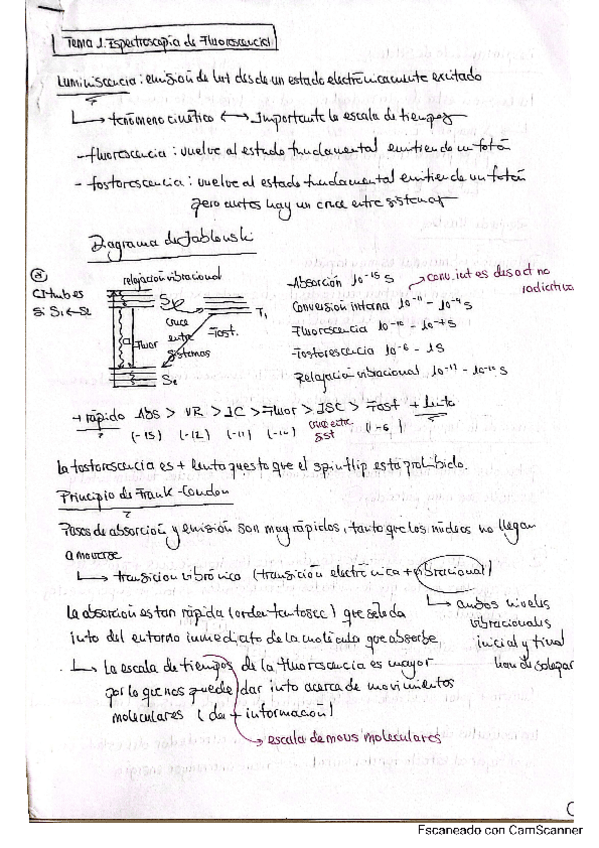 Tema 1. Espectroscopía de Fluorescencia
Luminiscencia: emisión de luz desde un estado electrónicamente excitado
↳ fenómeno cinético ↔ Importante la escala de tiempos
- fluorescencia: vuelve al estado fundamental emitiendo un fotón
- fosforescencia: vuelve al estado fundamental emitiendo un fotón
pero antes hay un cruce entre sistemas
Diagrama de Jablonski
relajación vibracional
T₁
cruce
entre
sistemas
Fluor
Fosf.
Absorción 10⁻¹⁵ s
Conversión interna 10⁻¹¹ - 10⁻⁹ s
Fluorescencia 10⁻¹⁰ - 10⁻⁷ s
Fosforescencia 10⁻⁶ - 1s
Relajación vibracional
+ rápido ABS > VR > IC > Fluor > ISC > Fosf + lento
(-15) (-12) (-11) (-10) cruce entre (-6)
sist
la fosforescencia es + lenta puesto que el spin flip está prohibido.
Principio de Frank-Condon
Pasos de absorción y emisión son muy rápidos, tanto que los núcleos no llegan
a moverse
↳ transición vibrónica (transición electrónica + vibracional)
↳ ambos niveles
vibracionales
inicial y final
han de solapar
la absorción es tan rápida (orden femtosec) que solo da
info del entorno inmediato de la molécula que absorbe
↳ la escala de tiempos de la fluorescencia es mayor
por lo que nos puede dar info acerca de movimientos
moleculares (da + información)
→ escala de movs moleculares
Escaneado con CamScanner